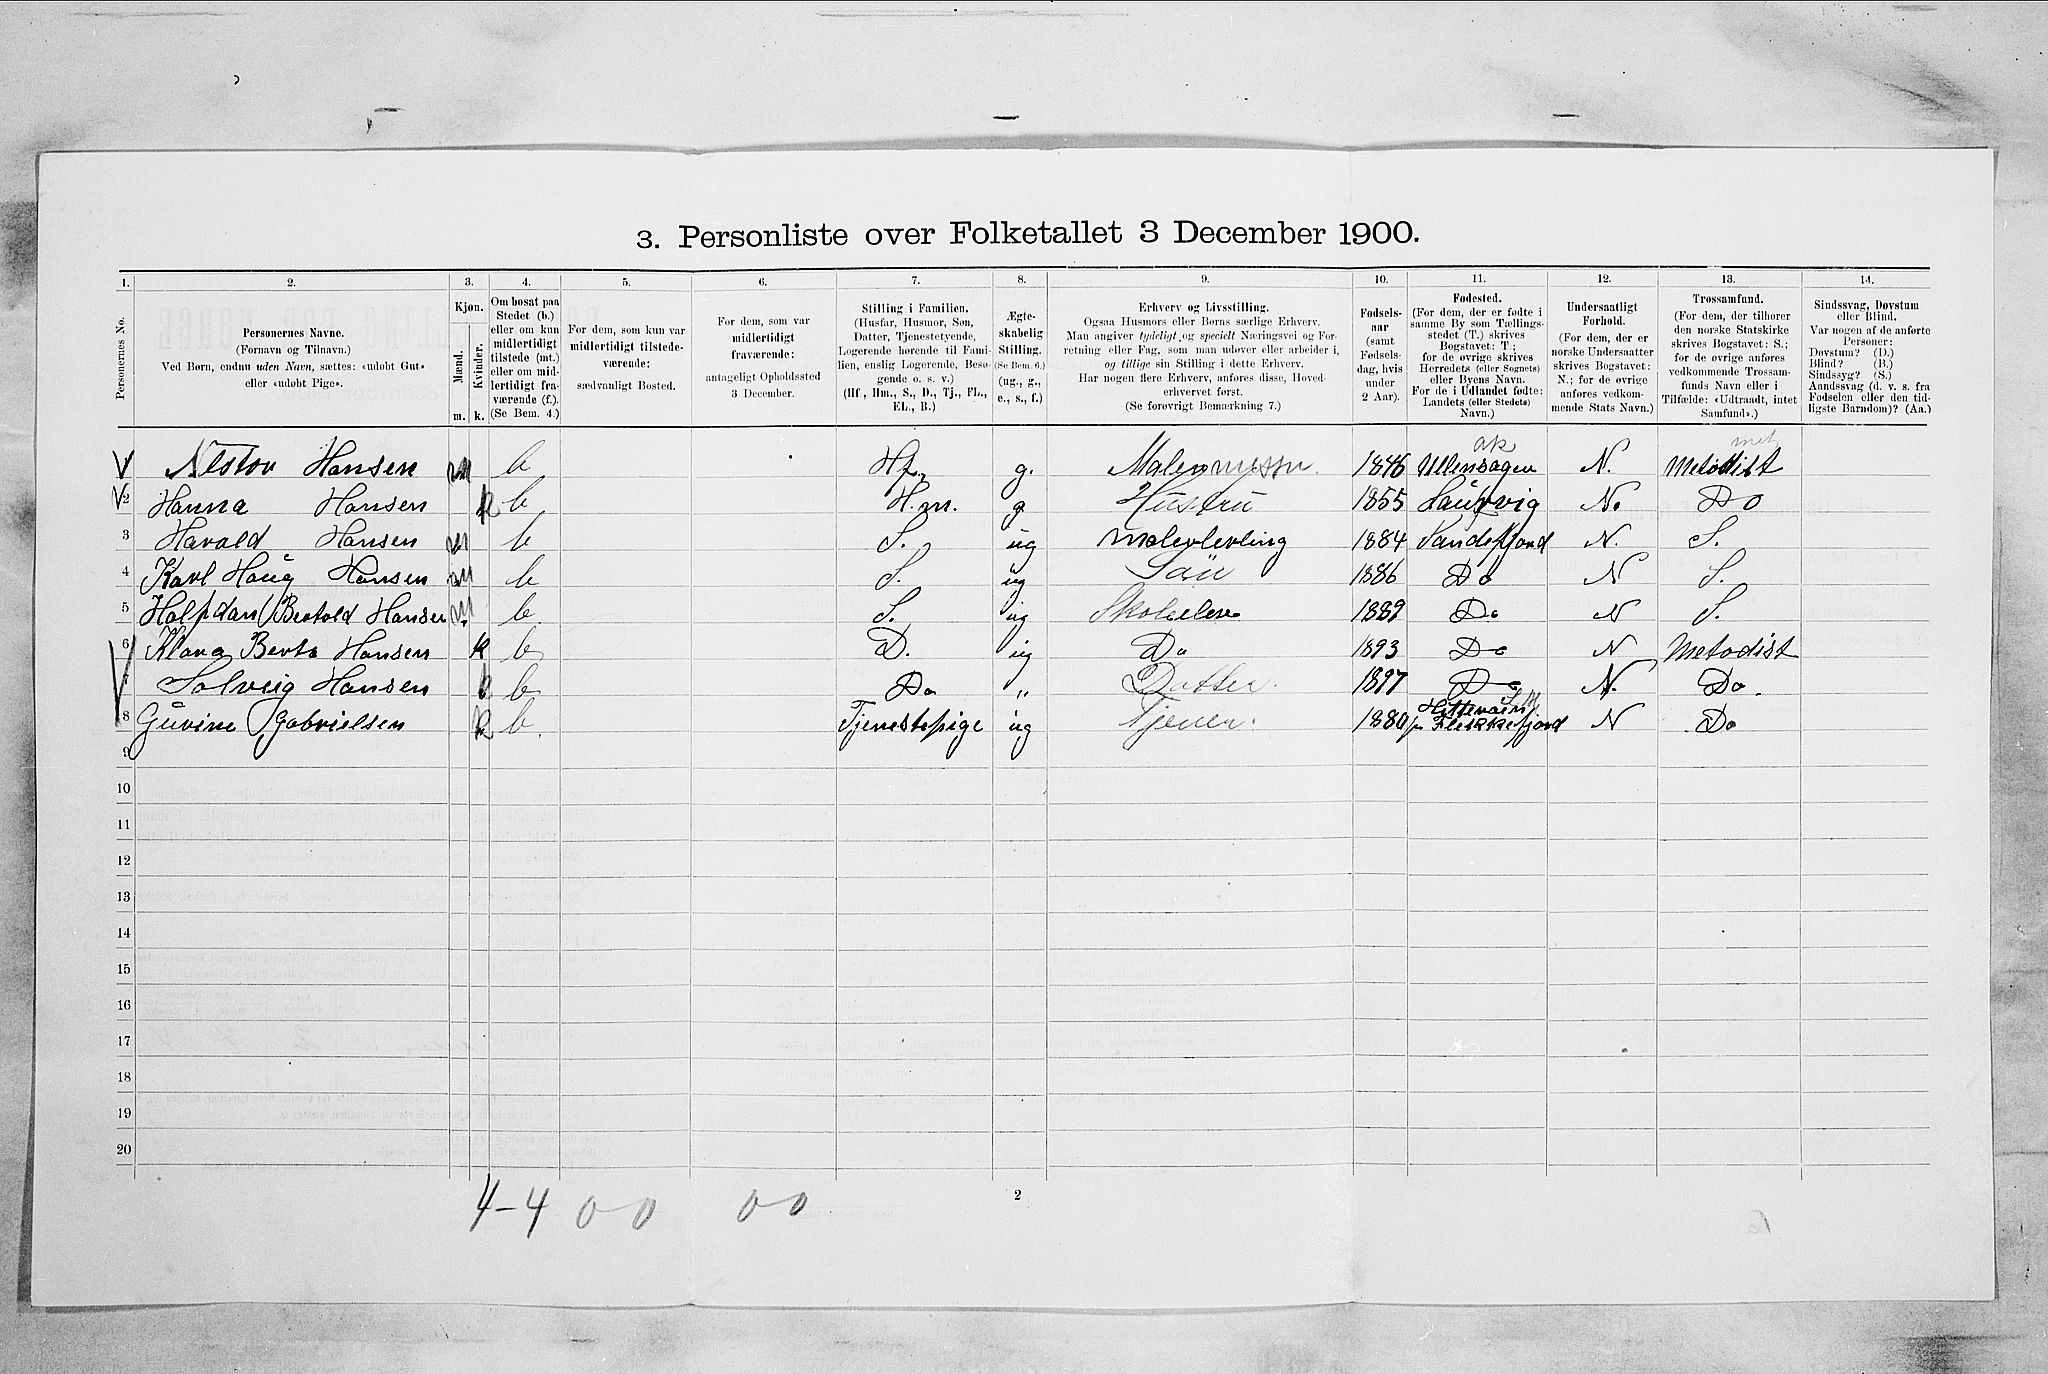 3. Personliste over Folketallet 3 December 1900.
1. 2. 3. 4. 5. 6. 7. 8. 9. 10. 11. 12. 13. 14.
Personernes No.
Personernes Navne.
(Fornavn og Tilnavn.)
Ved Børn, endnu uden Navn, sættes: «udøbt Gut»
eller «udøbt Pige».
Kjøn.
Mænd.
Kvinder.
m. k.
Om bosat paa
Stedet (b.)
eller om kun
midlertidigt
tilstede (mt.)
eller om mid-
lertidigt fra-
værende (f.).
(Se Bem. 4.)
For dem, som kun var
midlertidigt tilstede-
værende:
sædvanligt Bosted.
For dem, som var
midlertidigt
fraværende:
antageligt Opholdssted
3 December.
Stilling i Familien.
(Husfar, Husmor, Søn,
Datter, Tjenestetyende,
Logerende hørende til Fami-
lien, enslig Logerende, Besø-
gende o. s. v.)
(Hf., Hm., S., D., Tj., FL.,
EL., B.)
Ægte-
skabelig
Stilling.
(Se Bem. 6.)
(ug., g.,
e., s., f.)
Erhverv og Livsstilling.
Ogsaa Husmors eller Børns særlige Erhverv.
Man angiver tydeligt og specielt Næringsvei og For-
retning eller Fag, som man udøver eller arbeider i,
og tillige sin Stilling i dette Erhverv.
Har nogen flere Erhverv, anføres disse, Hoved-
erhvervet først.
(Se forøvrigt Bemærkning 7.)
Fødsels-
aar
(samt
Fødsels-
dag, hvis
under
2 Aar).
Fødested.
(For dem, der er fødte i
samme By som Tællings-
stedet (T.) skrives
Bogstavet: T.;
for de øvrige skrives
Herredets (eller Sognets)
eller Byens Navn.
For de i Udlandet fødte:
Landets (eller Stedets)
Navn.)
Undersaatligt
Forhold.
(For dem, der er
norske Undersaatter
skrives Bogstavet:
N.; for de øvrige
anføres vedkom-
mende Stats Navn.)
Trossamfund.
(For dem, der tilhører
den norske Statskirke
skrives Bogstavet: S.;
for de øvrige anføres
vedkommende Trossam-
funds Navn eller i
Tilfælde: «Udtraadt, intet
Samfund».)
Sindssvag, Døvstum
eller Blind.
Var nogen af de anførte
Personer:
Døvstum? (D.)
Blind? (B.)
Sindssyg? (S.)
Aandssvag (d. v. s. fra
Fødselen eller den tid-
ligste Barndom)? (Aa.)
ak met
Nestor Hansen m b Hf. g. Malermester. 1846 Ullensager N. Metodist
2 Hanna Hansen k b H.m. g Hustru 1855 Laurvig N. Do
3 Harald Hansen m b S. ug Malerlerling 1884 Sandefjord N. S.
4 Karl Haug Hansen m b S. ug Søn 1886 Do N S.
5 Halfdan Bertold Hansen m b. S. ug Skoleelev 1889 Do N S.
6 Klara Berta Hansen k b D. ug Do 1893 Do N Metodist
7 Solveig Hansen k b Do " Datter. 1897 Do N. Do.
8 Gurine Gabrielsen k b. Tjenestepige ug Tjener. 1880 Hitterø pr Flekkefjord N Do
9
10
11
12
13
14
15
16
17
18
19
20
4-4 0 0 0-0
2